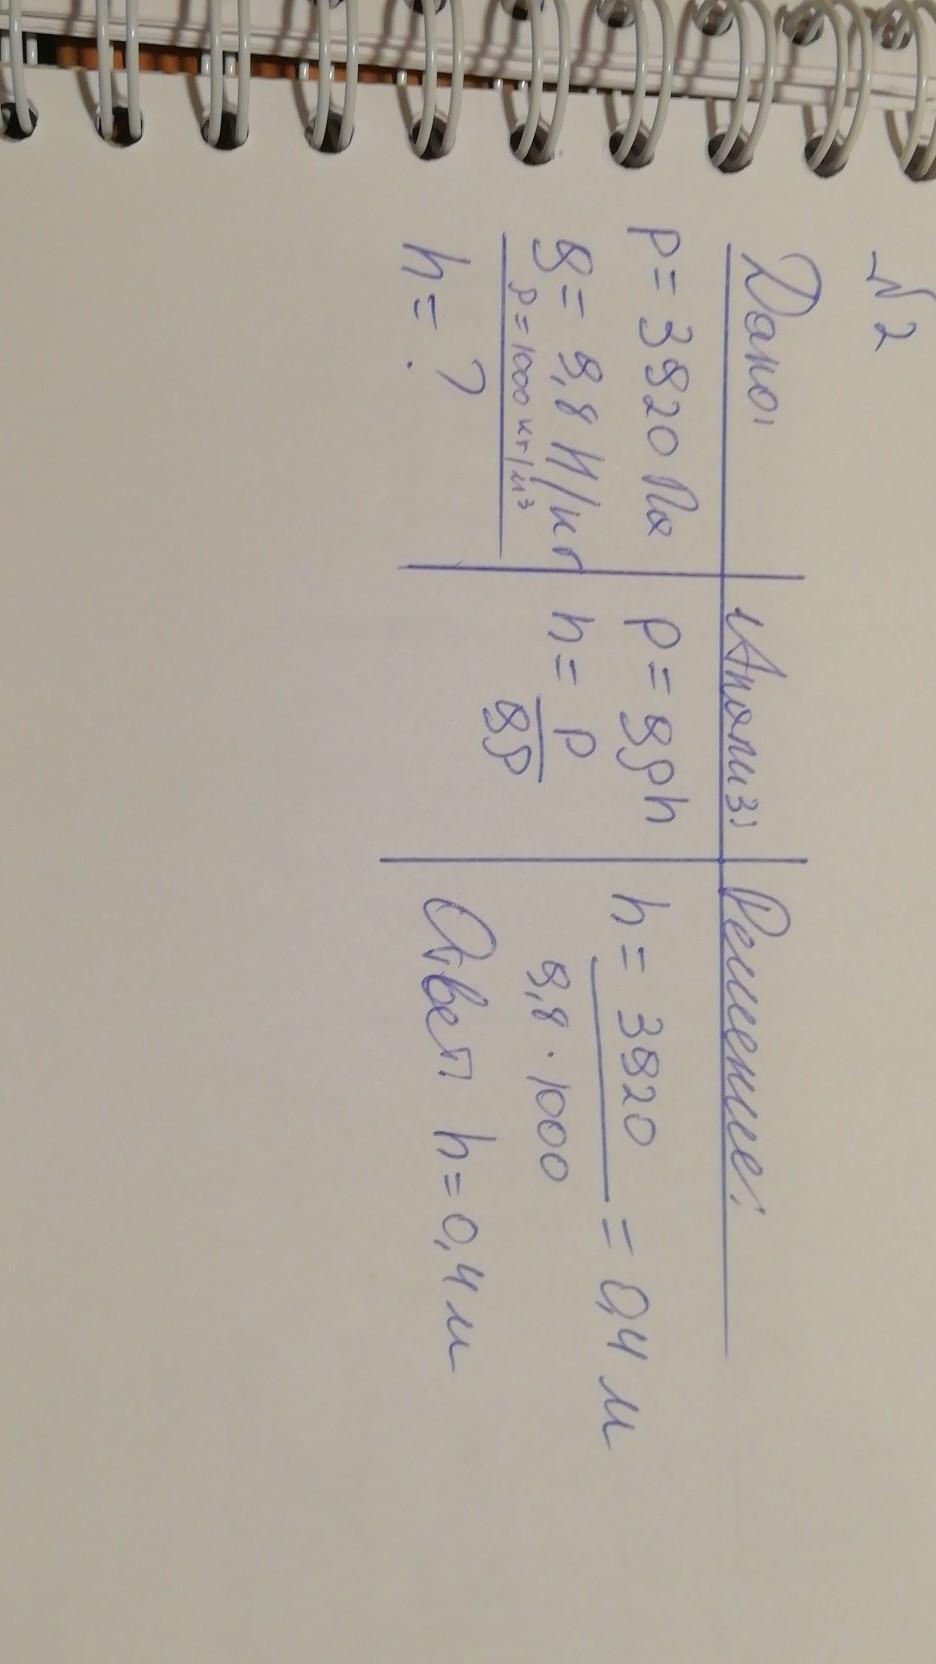 №2
Дано:
p = 3920 Па
g = 9,8 Н/кг
ρ = 1000 кг/м³
h = ?
Анализ:
p = gρh
h = p / gρ
Решение:
h = 3920 / 9,8 · 1000 = 0,4 м
Ответ h = 0,4 м